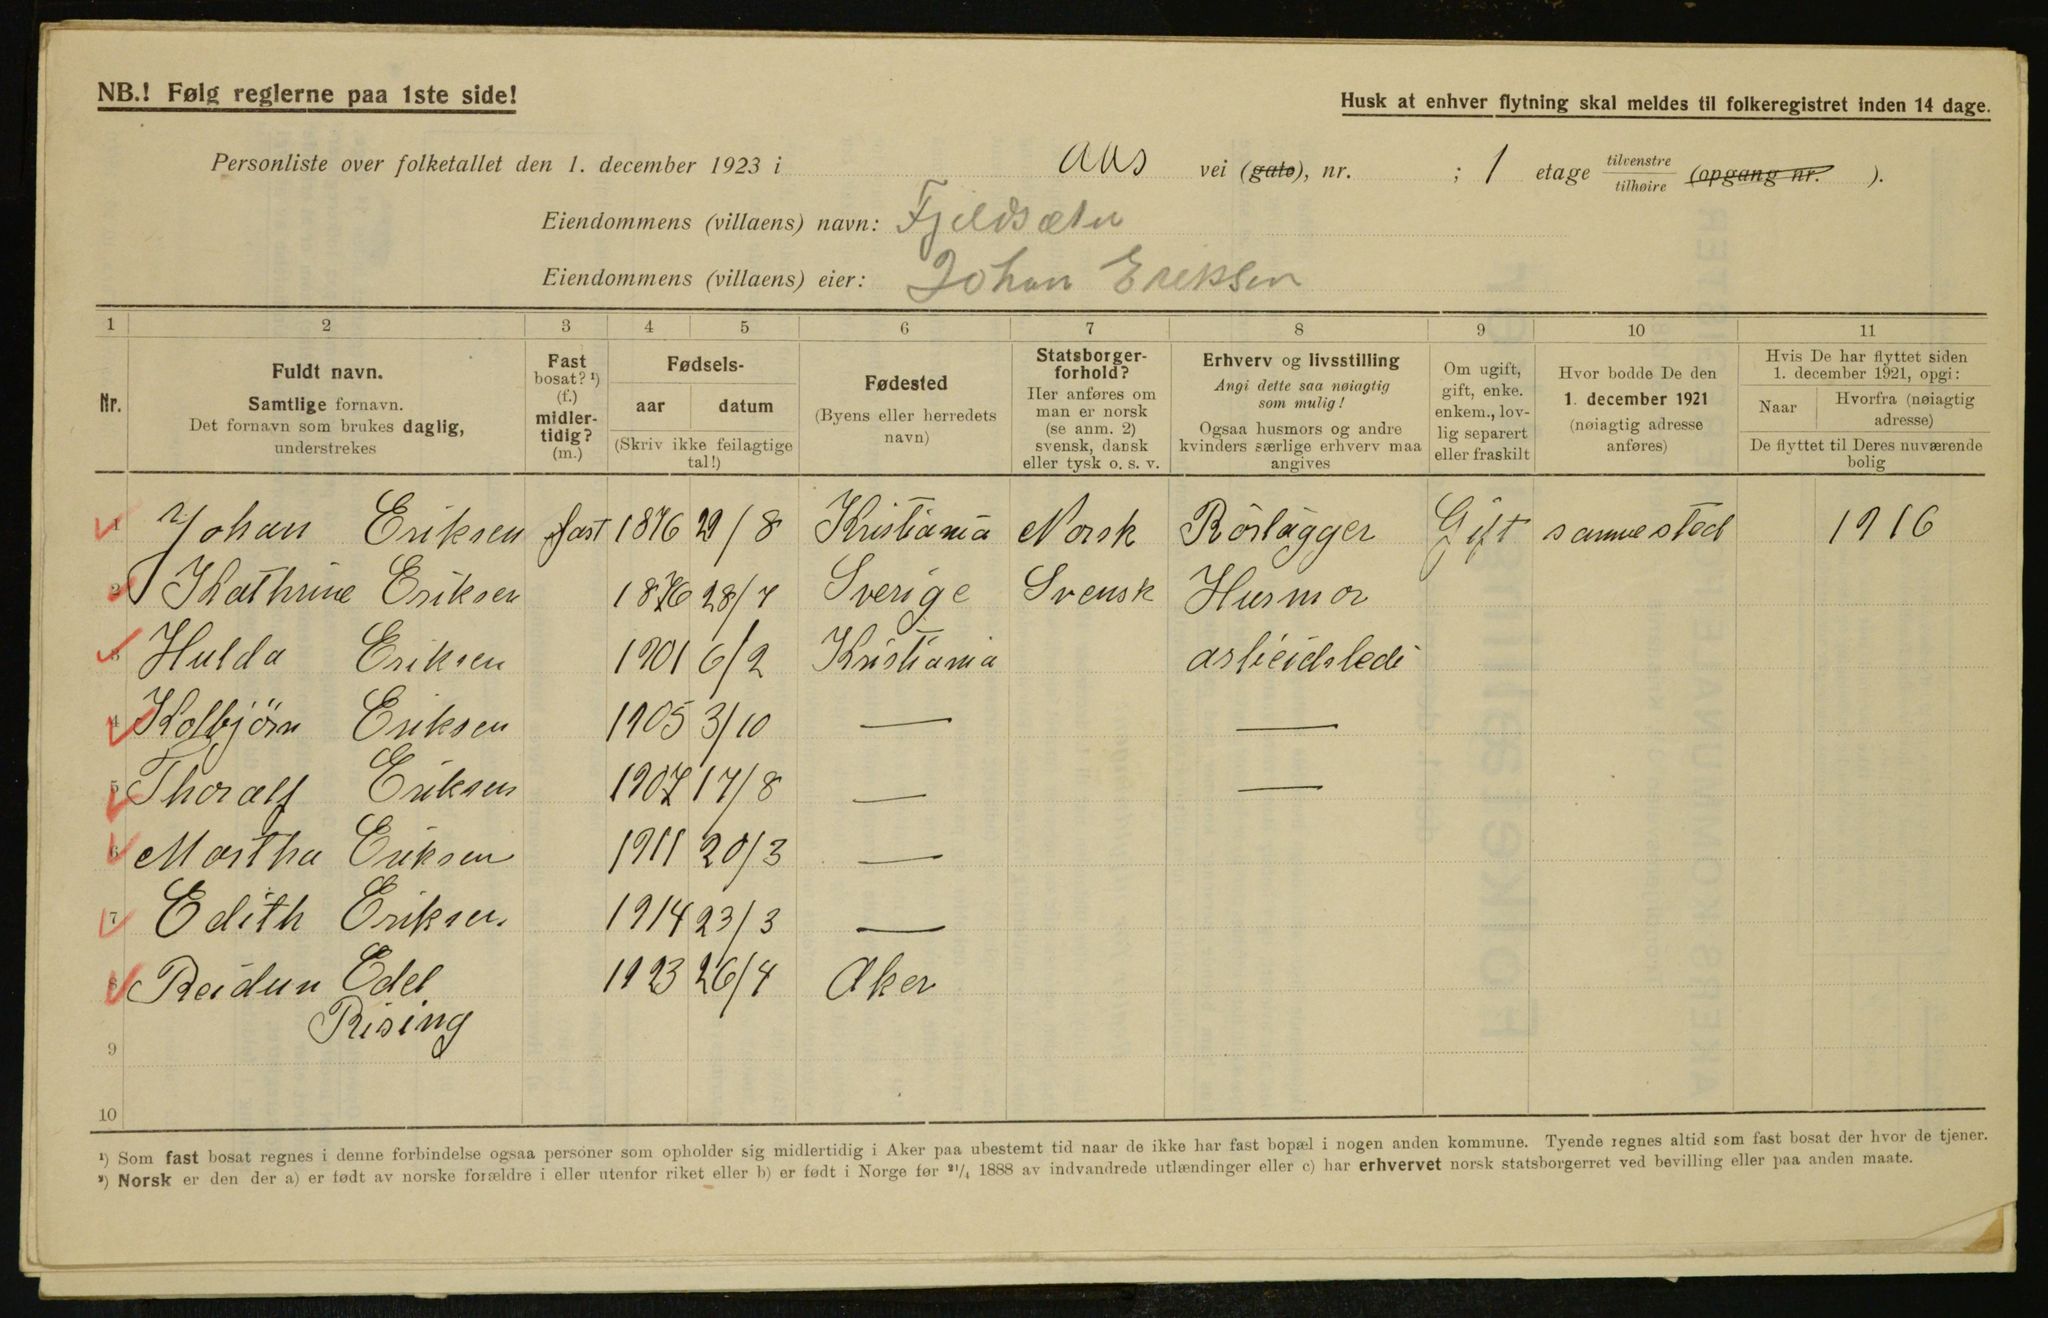 NB.! Følg reglerne paa 1ste side!
Husk at enhver flytning skal meldes til folkeregistret inden 14 dage.
Personliste over folketallet den 1. december 1923 i Aas vei (gate), nr. ; 1 etage tilvenstre/tilhøire (opgang nr. ).
Eiendommens (villaens) navn: Fjeldsæter
Eiendommens (villaens) eier: Johan Eriksen
1 2 3 4 5 6 7 8 9 10 11
Nr.
Fuldt navn.
Samtlige fornavn.
Det fornavn som brukes daglig,
understrekes
Fast
bosat? ¹)
(f.)
midler-
tidig?
(m.)
Fødsels-
aar datum
(Skriv ikke feilagtige
tal!)
Fødested
(Byens eller herredets
navn)
Statsborger-
forhold?
Her anføres om
man er norsk
(se anm. 2)
svensk, dansk
eller tysk o. s. v.
Erhverv og livsstilling
Angi dette saa nøiagtig
som mulig!
Ogsaa husmors og andre
kvinders særlige erhverv maa
angives
Om ugift,
gift, enke.
enkem., lov-
lig separert
eller fraskilt
Hvor bodde De den
1. december 1921
(nøiagtig adresse
anføres)
Hvis De har flyttet siden
1. december 1921, opgi:
Naar
Hvorfra (nøiagtig
adresse)
De flyttet til Deres nuværende
bolig
1 Johan Eriksen fast 1876 29/8 Kristiania Norsk Rörlägger Gift samme sted 1916
2 Kathrine Eriksen 1876 28/7 Sverige Svensk Husmor
3 Hulda Eriksen 1901 6/2 Kristiania arbeidsledi
4 Kolbjörn Eriksen 1905 3/10 — —
5 Thoralf Eriksen 1907 17/8 — —
6 Martha Eriksen 1911 20/3 —
7 Edith Eriksen 1914 23/3 —
8 Reidun Edel 1923 26/4 Aker
Rising
9
10
¹) Som fast bosat regnes i denne forbindelse ogsaa personer som opholder sig midlertidig i Aker paa ubestemt tid naar de ikke har fast bopæl i nogen anden kommune. Tyende regnes altid som fast bosat der hvor de tjener.
²) Norsk er den der a) er født av norske forældre i eller utenfor riket eller b) er født i Norge før ²¹/₄ 1888 av indvandrede utlændinger eller c) har erhvervet norsk statsborgerret ved bevilling eller paa anden maate.